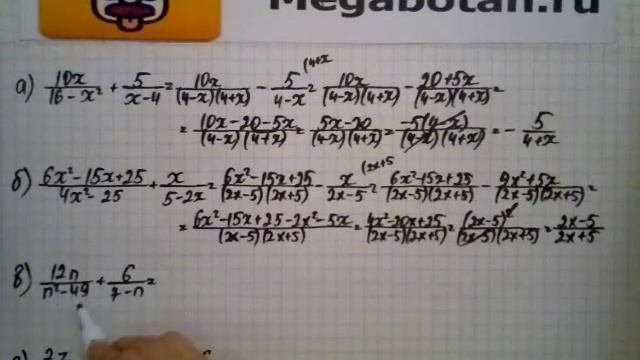 Megabotan.ru
а) 10x/(16-x²) + 5/(x-4) = 10x/((4-x)(4+x)) - 5/(4-x) (4+x = 10x/((4-x)(4+x)) - (20+5x)/((4-x)(4+x)) =
= (10x-20-5x)/((4-x)(4+x)) = (5x-20)/((4-x)(4+x)) = -5(4-x)/((4-x)(4+x)) = - 5/(4+x)
б) (6x²-15x+25)/(4x²-25) + x/(5-2x) = (6x²-15x+25)/((2x-5)(2x+5)) - x/(2x-5) (2x+5 = (6x²-15x+25)/((2x-5)(2x+5)) - (2x²+5x)/((2x-5)(2x+5)) =
= (6x²-15x+25-2x²-5x)/((2x-5)(2x+5)) = (4x²-20x+25)/((2x-5)(2x+5)) = (2x-5)²/((2x-5)(2x+5)) = (2x-5)/(2x+5)
в) 12n/(n²-49) + 6/(7-n) =